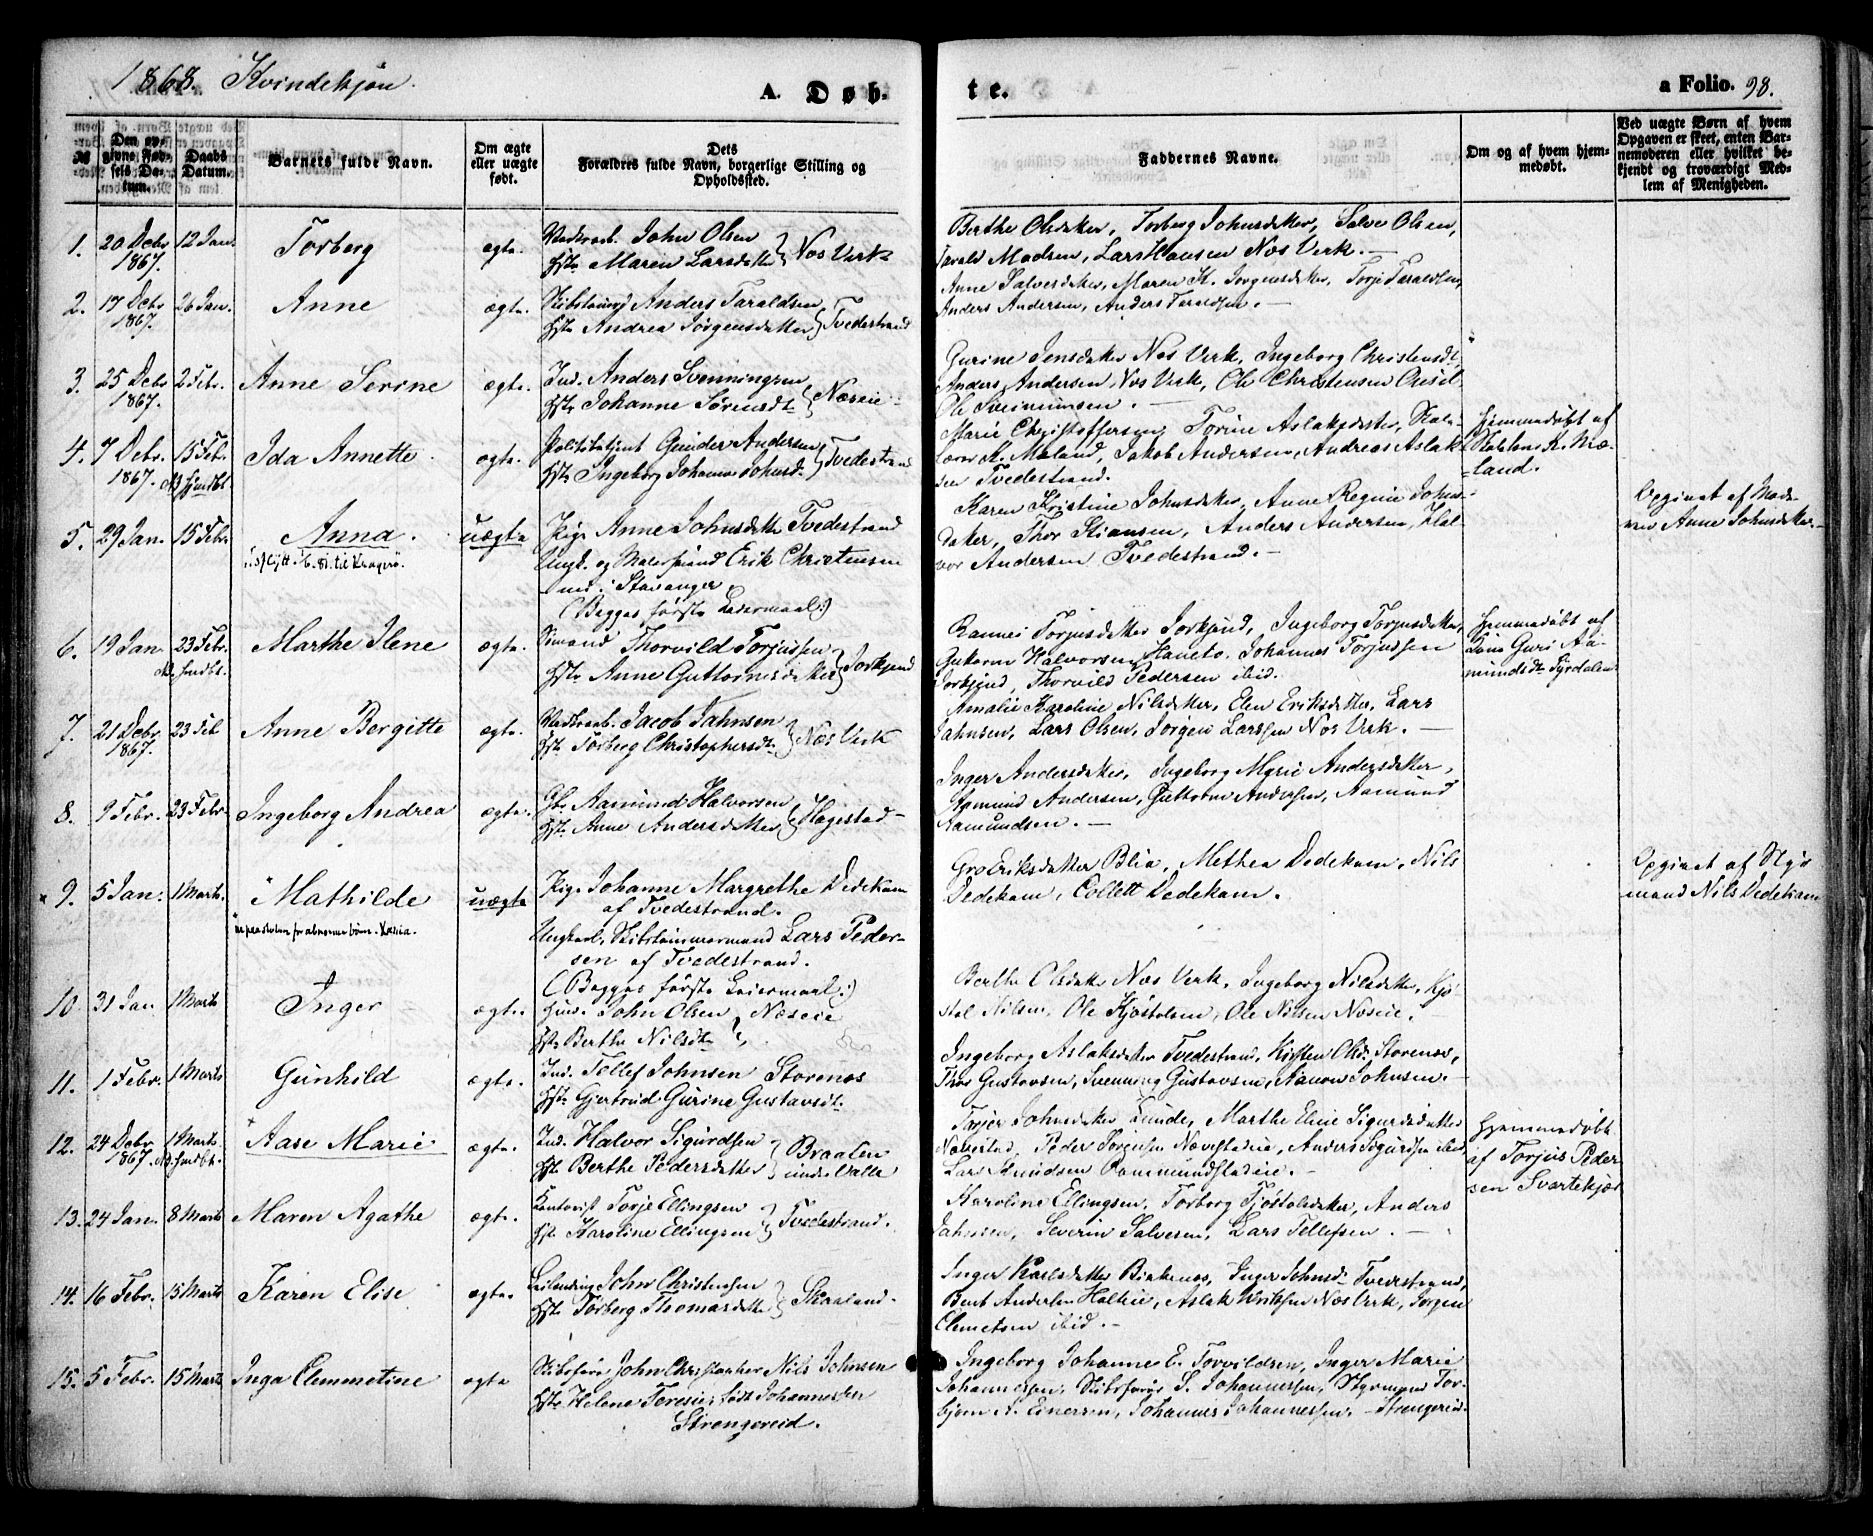 1868. Kvindekjøn.
A. Døb-
te.
a Folio. 98.
№
Den op-
givne Fød-
sels Da-
tum.
Daabs
Datum.
Barnets fulde Navn.
Om ægte
eller uægte
født.
Dets
Forældres fulde Navn, borgerlige Stilling og
Opholdssted.
Faddernes Navne.
Om og af hvem hjem-
medøbt.
Ved uægte Børn af hvem
Opgaven er skeet, enten Bar-
nemoderen eller hvilket be-
kjendt og troværdigt Med-
lem af Menigheden.
1. 20 Debr 1867. 12 Jan. Torberg ægte.
John Olsen
Hst. Maren Larsdatter } Næs Verk
Berthe Olsdatter, Torberg Johnsdatter, Salve Olsen,
Tarald Madsen, Lars Hansen Næs Verk. —
2. 17 Debr 1867. 26 Jan. Anne ægte.
Anders Taraldsen
Hst. Andrea Jørgensdatter } Tvedestrand
Anne Salvesdatter, Maren K. Jørgensdatter, Torje Taraldsen,
Anders Andersen, Anders Taraldsen. —
3. 25 Debr 1867. 2 Febr. Anne Serine ægte.
Ind. Anders Svenningsen
Hst. Johanne Sørensdt. } Næseie
Gurine Jensdatter Næs Verk, Ingeborg Christensdt.
Anders Andersen Næs Verk, Ole Christensen
Ole Svenningsen. —
4. 7 Debr. 1867. 15 Febr. Ida Annette ægte.
Politibetjent Gunder Andersen
Hst. Ingeborg Johanne Johnsd. } Tvedestrand
Marie Christoffersen, Torine Aslaksdatter, Skole-
lærer K. Mæland, Jakob Andersen, Andreas Aslak-
sen Tvedestrand.
Hjemmedøbt af
Skolelær. K. Mæ-
land.
5. 29 Jan. 15 Febr. Anna. uægte
Pige Anne Johnsdatter Tvedestrand
Ungk. og Malersvend Erik Christensen
i Stavanger
(Begges første Leiermaal:)
til Kragerø.
Karen Kristine Johnsdatter, Anne Regine Johns-
datter, Thor Stiansen, Anders Andersen, Hal-
vor Andersen Tvedestrand. —
Opgivet af Mode-
ren Anne Johnsdatter.
6. 19 Jan. 23 Febr. Marthe Elene ægte.
Thorvild Torjussen
Hst. Anne Guttormsdatter } Sorkjend
Torjusdatter Sorkjend, Ingeborg Torjusdatter,
Guttorm Halvorsen Haneto, Johannes Torjussen
Sorkjend, Thorvild Pedersen ibid.
Hjemmedøbt af
Guri Aa-
mundsdt.
7. 21 Debr. 1867. 23 Feb Anne Bergitte ægte.
Jacob Jahnsen
Hst. Torberg Christophersdt. } Næs Verk
Amalie Karoline Nilsdatter, Elen Eriksdatter, Lars
Jahnsen, Lars Olsen, Jørgen Larssen Næs Verk. —
8. 9 Febr. 23 Febr. Ingeborg Andrea ægte.
Aamund Halvorsen
Hst. Anne Andersdatter } Hagestad
Inger Andersdatter, Ingeborg Marie Andersdatter,
Aamund Andersen, Guttorm Andersen, Aamund
Aamundsen. —
9. 5 Jan. 1 Marts. Mathilde uægte
Pige Johanne Margrethe Dedekam
af Tvedestrand.
Ungkarl, Skibstømmermand Lars Peder-
sen af Tvedestrand.
(Begges første Leiermaal:)
Gro Eriksdatter Blia, Methea Dedekam, Nils
Dedekam, Collett Dedekam.
Opgivet af Styr-
mand Nils Dedekam
10. 31 Jan 1 Marts Inger ægte.
John Olsen } Næseie
Hst. Berthe Nilsdt.
Berthe Olsdatter Næs Verk, Ingeborg Nilsdatter, Kjø-
stol Nilsen, Ole Kjøstolsen, Ole Nilsen Næseie.
11. 1 Febr. 1 Marts Gunhild ægte.
Ind. Tellef Johnsen Storenæs
Hst. Gjertrud Gurine Gustavsdt.
Ingeborg Aslaksdatter Tvedestrand, Kirsten Olsd. Storenæs,
Thor Gustavsen, Svenning Gustavsen, Aanon Johnsen.
12. 24 Debr 1867. 1 Marts. Aase Marie ægte.
Ind. Halvor Sigurdsen
Hst. Berthe Pedersdatter } Braaten
under Valle
Torjer Johnsdatter Lunde, Marthe Elene Sigurdsdatter
Næverstad, Peder Jørgensen Næverstadeie, Anders Sigurdsen ibid,
Lars Knudsen
Hjemmedøbt
af Torjus Peder-
sen Svartekjær
13. 24 Jan. 8 Marts Maren Agathe ægte.
Kontorist Torje Ellingsen
Hst. Karoline Ellingsen } Tvedestrand.
Karoline Ellingsen, Torborg Kjøstolsdatter, Anders
Jahnsen, Severin Salvesen, Lars Tellefsen. —
14. 16 Febr. 15 Marts Karen Elise ægte.
Leilending John Christensen
Hst. Torberg Thomasdatter } Skaaland.
Inger Karlsdatter Birkenæs, Inger Johnsd. Tvedestrand,
Bent Andersen Holteie, Aslak Næs Verk, Jørgen
Clemetsen ibid. —
15. 5 Febr. 15 Marts Inga Clemmetine ægte
Skibsfører John Christopher Nils Johnsen
Hst. Helene Teresie født Johannessen
Strengereid.
Ingeborg Johanne E. Torvildsen, Inger Marie
Johannessen, Skibsfører S. Johannessen, Styrmand Tor-
bjørn A. Einersen, Johannes Johannessen. — Strengereid.